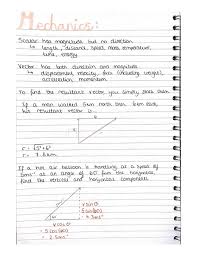 Mechanics:
Scalar has magnitude but no direction
↳ length, distance, speed, mass, temperature,
time, energy
Vector has both direction and magnitude
↳ displacement, velocity, force (including weight),
acceleration, momentum
To find the resultant vector you simply add them
If a man walked 5km north then 6km east,
his resultant vector:
r = √5² + 6²
r = 7.8km
If a hot air balloon is travelling at a speed of
5ms⁻¹ at an angle of 60° from the horizontal,
find the vertical and horizontal components
v sin θ
= 5 sin(60)
= 4.3ms⁻¹
v cos θ
= 5 cos(60)
= 2.5ms⁻¹